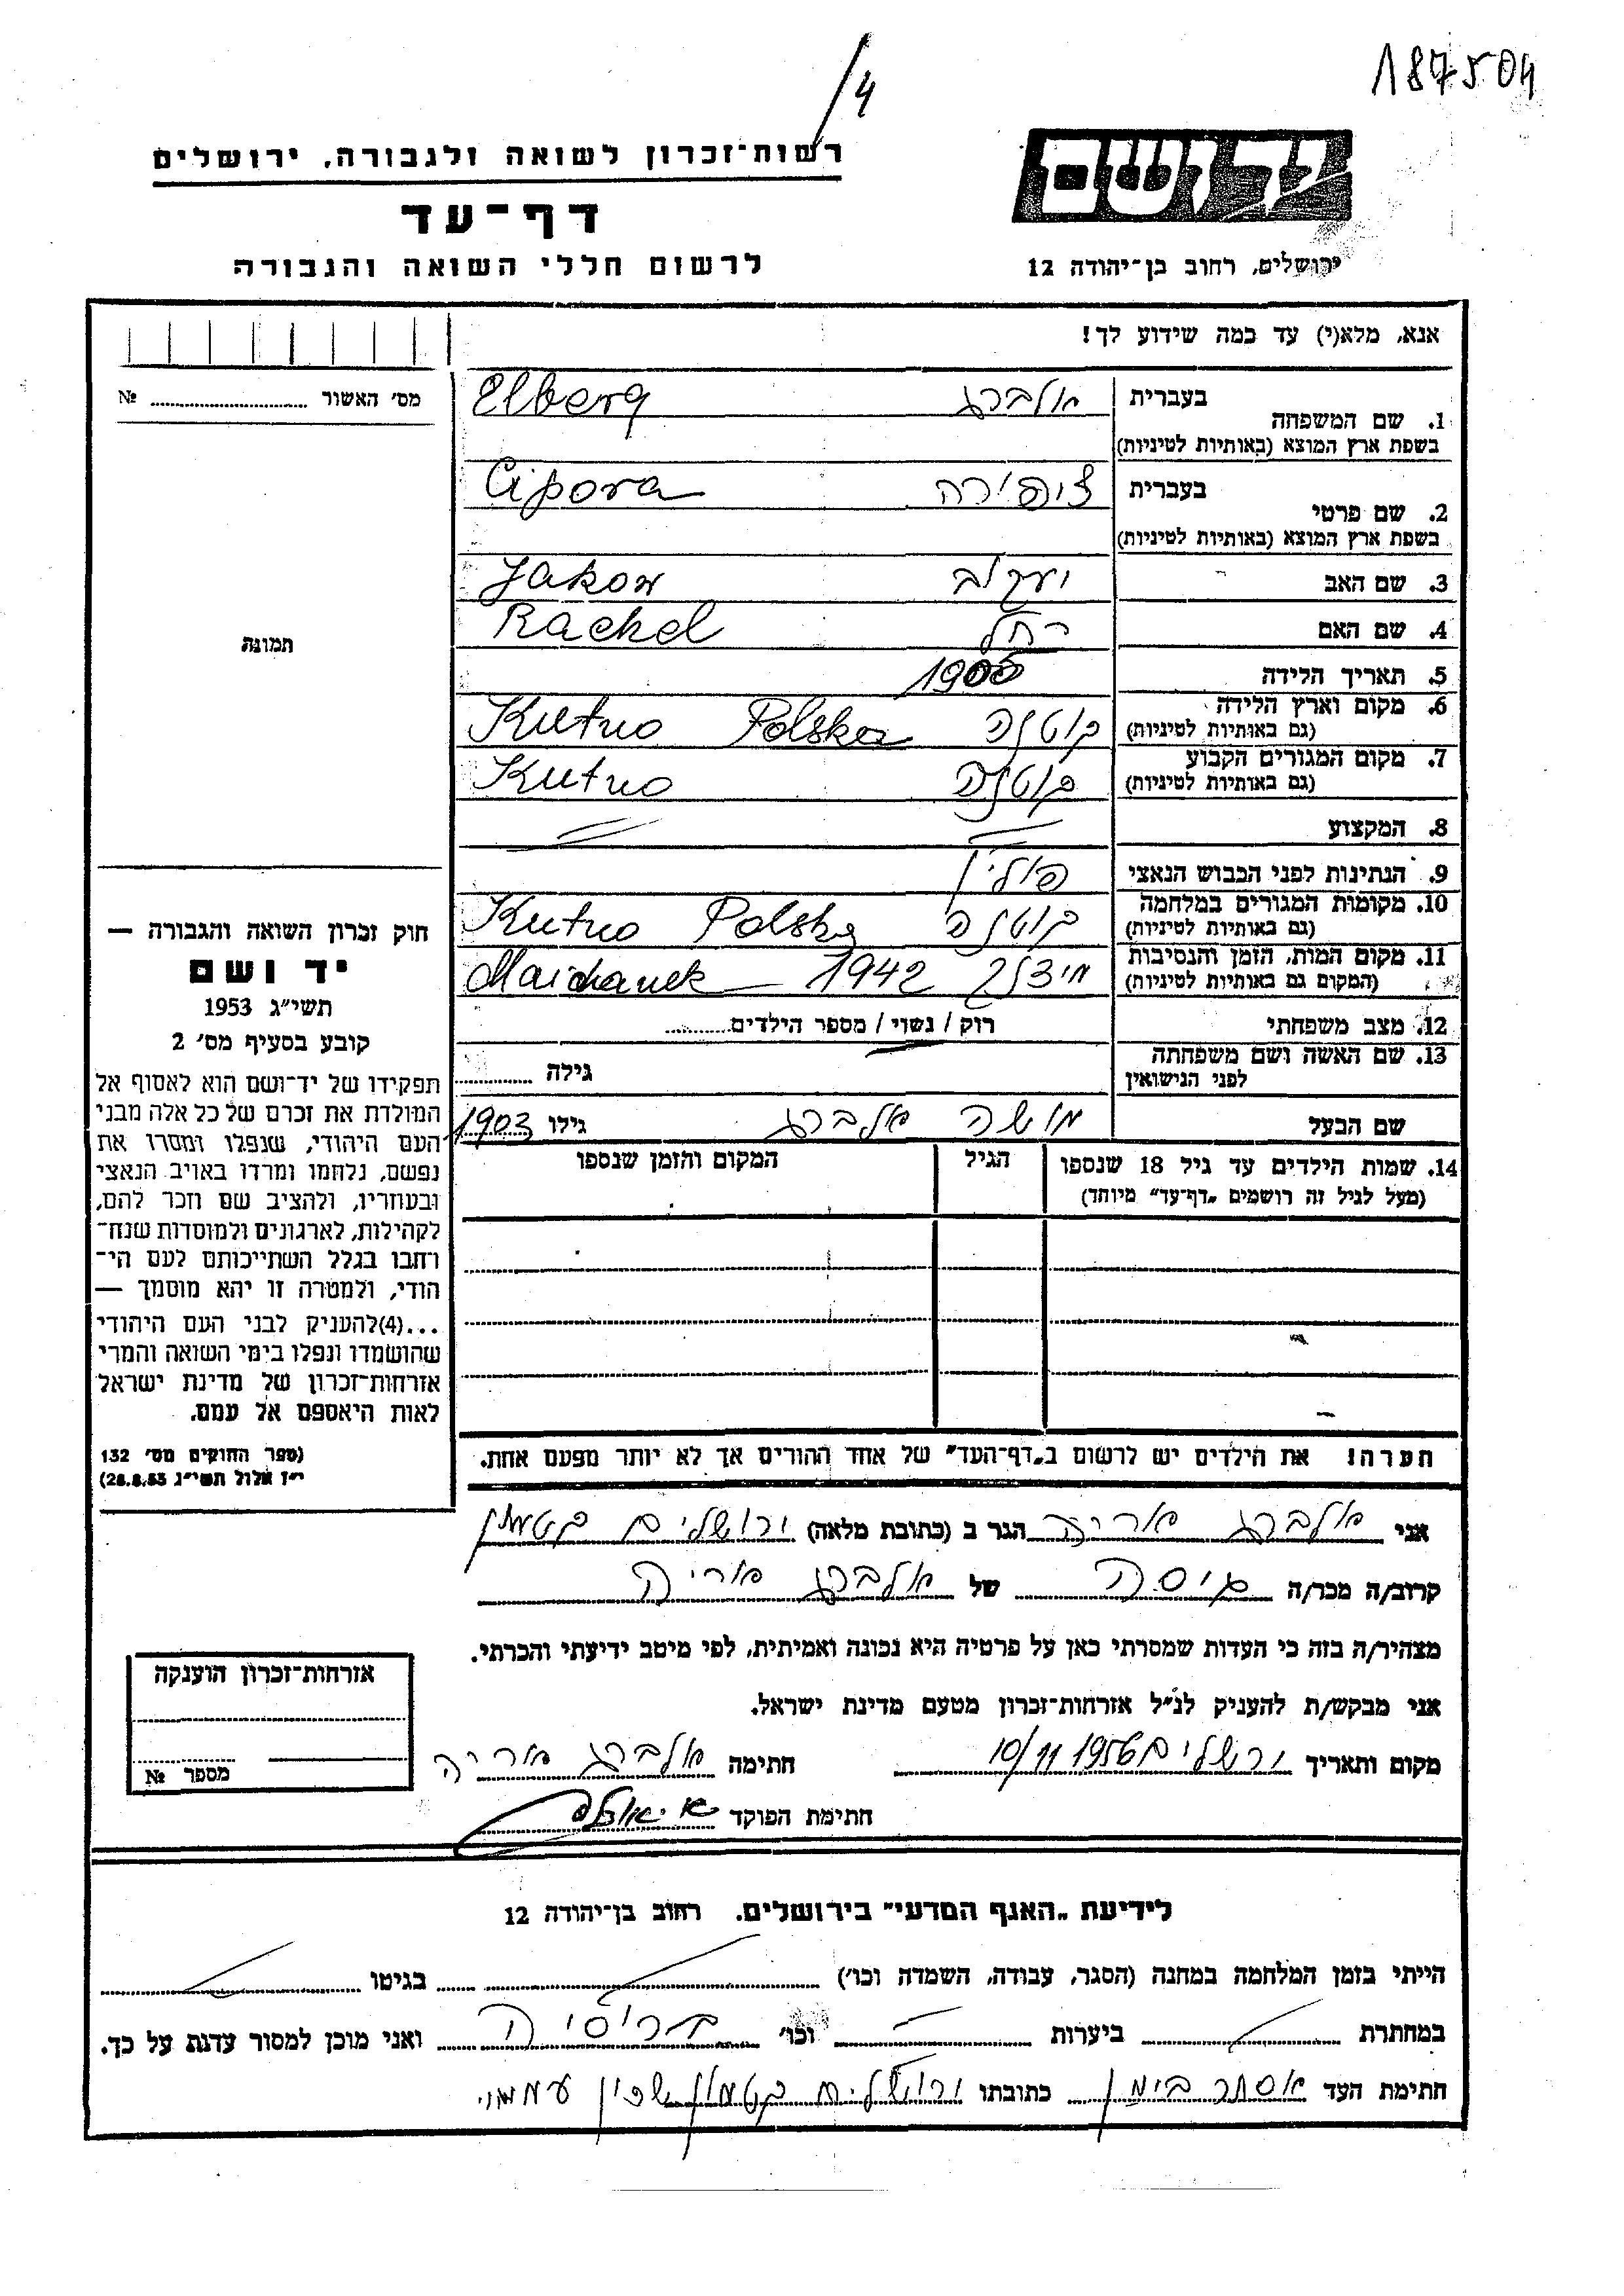 187504
/4
יד ושם
ירושלים, רחוב בן־יהודה 12
רשות־זכרון לשואה ולגבורה, ירושלים
דף־עד
לרשום חללי השואה והגבורה
אנא, מלא(י) עד כמה שידוע לך!
מס׳ האשור № ........
תמונה
1. שם המשפחה בעברית אלברג Elberg
בשפת ארץ המוצא (באותיות לטיניות)
2. שם פרטי בעברית ציפורה Cipora
בשפת ארץ המוצא (באותיות לטיניות)
3. שם האב יעקב Jakow
4. שם האם רחל Rachel
5. תאריך הלידה 1905
6. מקום וארץ הלידה קוטנה Kutno Polska
(גם באותיות לטיניות)
7. מקום המגורים הקבוע קוטנה Kutno
(גם באותיות לטיניות)
8. המקצוע
9. הנתינות לפני הכבוש הנאצי פולין
10. מקומות המגורים במלחמה קוטנה Kutno Polska
(גם באותיות לטיניות)
11. מקום המות, הזמן והנסיבות 1942 Maidanek
(המקום גם באותיות לטיניות)
12. מצב משפחתי רוק / נשוי / מספר הילדים........
13. שם האשה ושם משפחתה
לפני הנישואין גילה ........
שם הבעל משה אלברג גילו 1903
14. שמות הילדים עד גיל 18 שנספו הגיל המקום והזמן שנספו
(מעל לגיל זה רושמים „דף־עד” מיוחד)
הערה! את הילדים יש לרשום ב„דף־העד” של אחד ההורים אך לא יותר מפעם אחת.
חוק זכרון השואה והגבורה —
יד ושם
תשי״ג 1953
קובע בסעיף מס׳ 2
תפקידו של יד־ושם הוא לאסוף אל
המולדת את זכרם של כל אלה מבני
העם היהודי, שנפלו ומסרו את
נפשם, נלחמו ומרדו באויב הנאצי
ובעוזריו, ולהציב שם וזכר להם,
לקהילות, לארגונים ולמוסדות שנח־
רבו בגלל השתייכותם לעם הי־
הודי, ולמטרה זו יהא מוסמך —
...(4)להעניק לבני העם היהודי
שהושמדו ונפלו בימי השואה והמרי
אזרחות־זכרון של מדינת ישראל
לאות היאספם אל עמם.
(ספר החוקים מס׳ 132
י״ז אלול תשי״ג 28.8.53)
אני אלברג אריה הגר ב (כתובת מלאה) ירושלים קטמון
קרוב/ה מכר/ה גיסה של אלברג אריה
מצהיר/ה בזה כי העדות שמסרתי כאן על פרטיה היא נכונה ואמיתית, לפי מיטב ידיעתי והכרתי.
אני מבקש/ת להעניק לנ״ל אזרחות־זכרון מטעם מדינת ישראל.
מקום ותאריך ירושלים 10/11 1956 חתימה אלברג אריה
חתימת הפוקד
אזרחות־זכרון הוענקה
מספר №
לידיעת „האגף המדעי” בירושלים. רחוב בן־יהודה 12
הייתי בזמן המלחמה במחנה (הסגר, עבודה, השמדה וכו׳) בגיטו
במחתרת ביערות וכו׳ ברוסיה ואני מוכן למסור עדות על כך.
חתימת העד אסתר כתובתו ירושלים קטמון שכון עממי